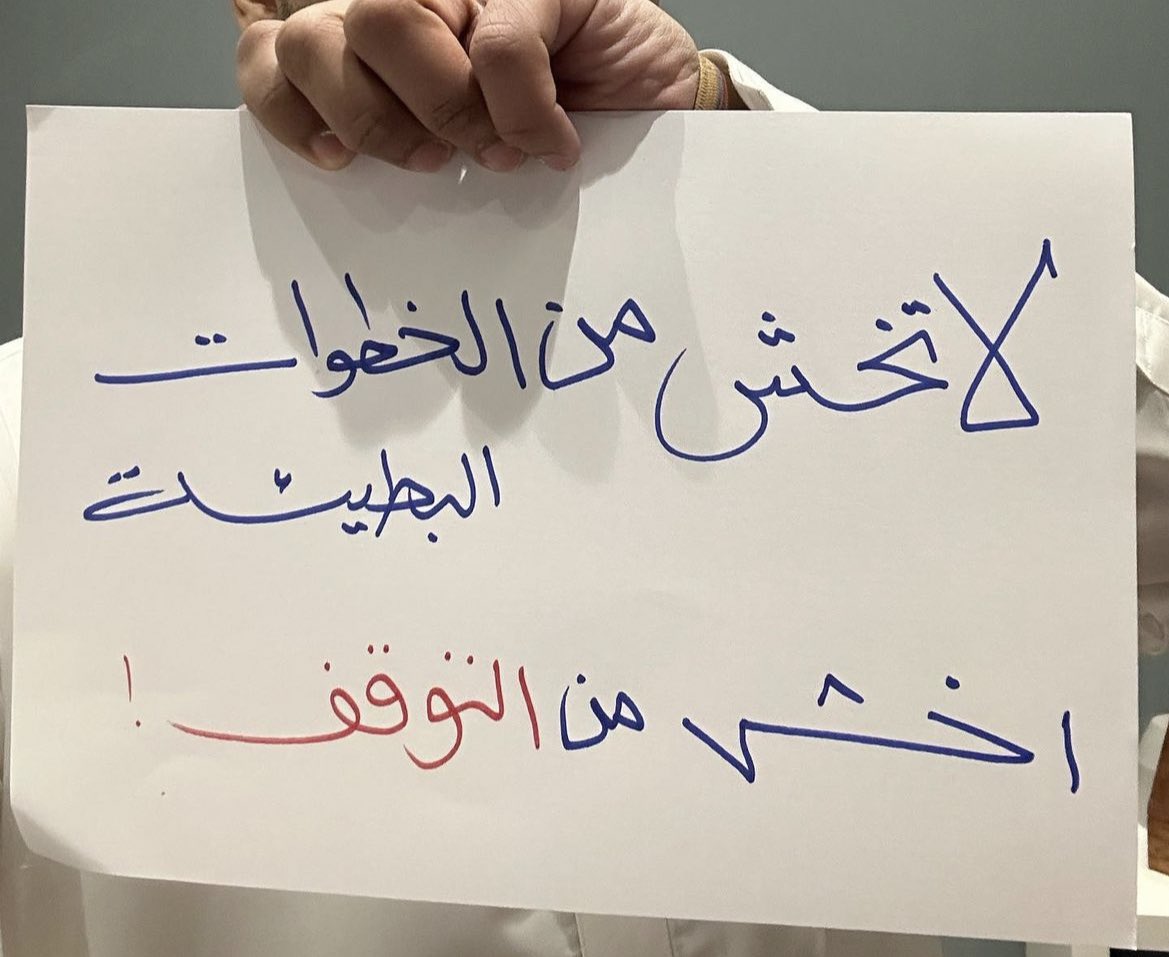 لا تخش من الخطوات
البطيئة
اخش من التوقف !